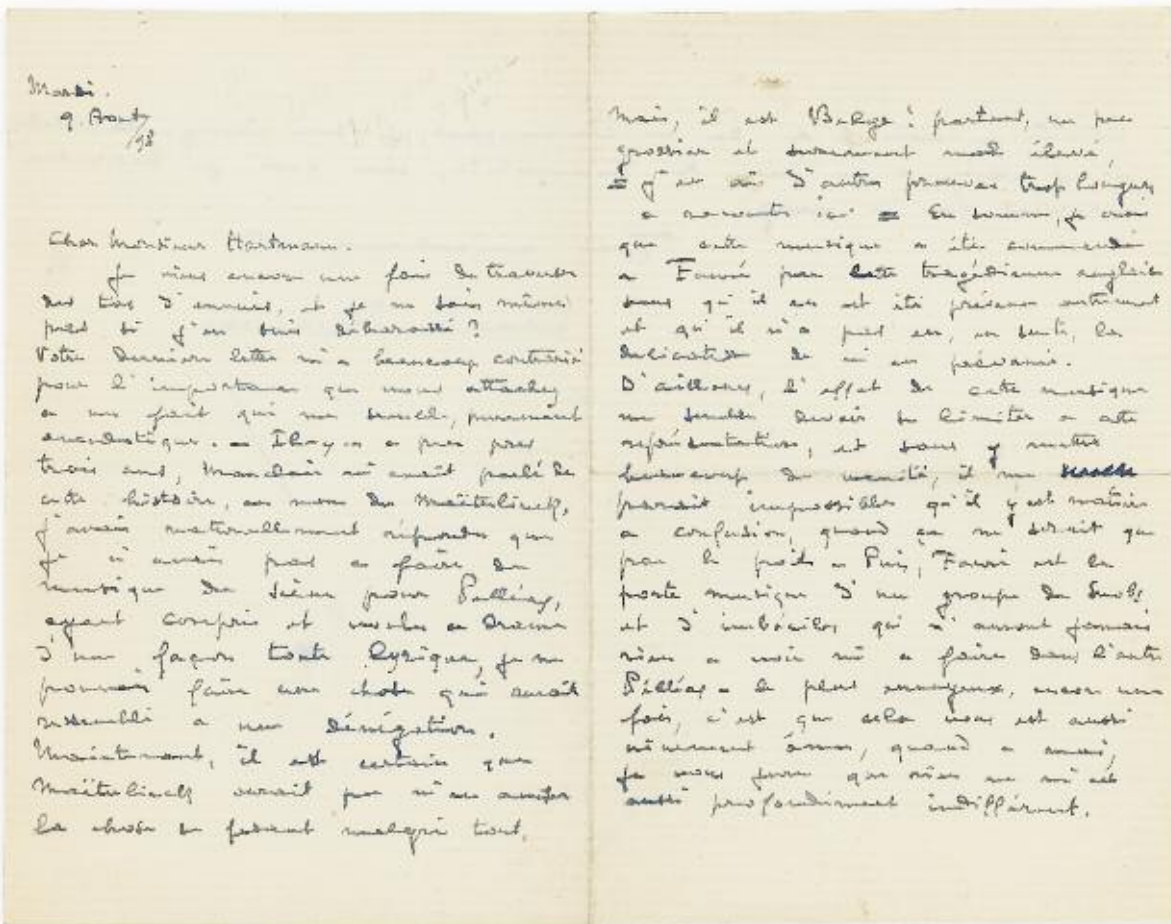 Mardi.
9. Aout
/98
Cher Monsieur Hartmann.
Je viens encore une fois de traverser
des tas d'ennuis, et je ne sais même
pas si j'en suis débarassé?
Votre dernière lettre m'a beaucoup contrarié
pour l'importance que vous attachez
a un fait qui me semble, purement
anecdotique. = Il y a a peu près
trois ans, Mauclair m'avait parlé de
cette histoire, au nom de Maëterlinck,
j'avais naturellement répondu que
je n'avais pas a faire de
musique de scène pour Pelléas,
ayant compris et voulu ce drame
d'une façon toute lyrique, je ne
pouvais faire une chose qui aurait
ressemblé a une dénégation.
Maintenant, il est certain que
Maëterlinck aurait pu m'en aviser
la chose se faisant malgré tout,
Mais, il est Belge! partant, un peu
grossier et surement mal élevé,
= j'en ai d'autres preuves trop longues
a raconter ici = En somme, je crois
que cette musique a été commandée
a Fauré par cette tragédienne anglaise
sans qu'il en ait été prévenu autrement
et qu'il n'a pas eu, en suite, la
délicatesse de m'en prévenir.
D'ailleurs, l'effet de cette musique
me semble devoir se limiter a cette
représentation, et sans y mettre
beaucoup de vanité, il me
parait impossible qu'il y ait matière
a confusion, quand ça ne serait que
par le poids = Puis, Fauré est le
porte musique d'un groupe de Snobs
et d'imbéciles qui n'auront jamais
rien a voir ni a faire dans l'autre
Pelléas = le plus ennuyeux, encore une
fois, c'est que cela vous ait aussi
vivement ému, quand a moi,
je vous jure que rien ne m'est
aussi profondément indifférent.